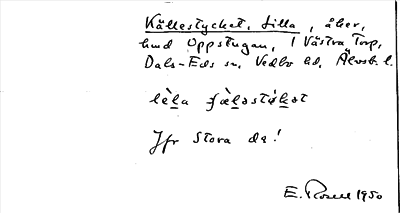 Källestycket, Lilla, åker,
hmd Oppstugan, 1 Västra Torp,
Dals-Eds sn, Vedbo hd, Älvsb. l.
Jfr Stora da!
E. Rosell 1950